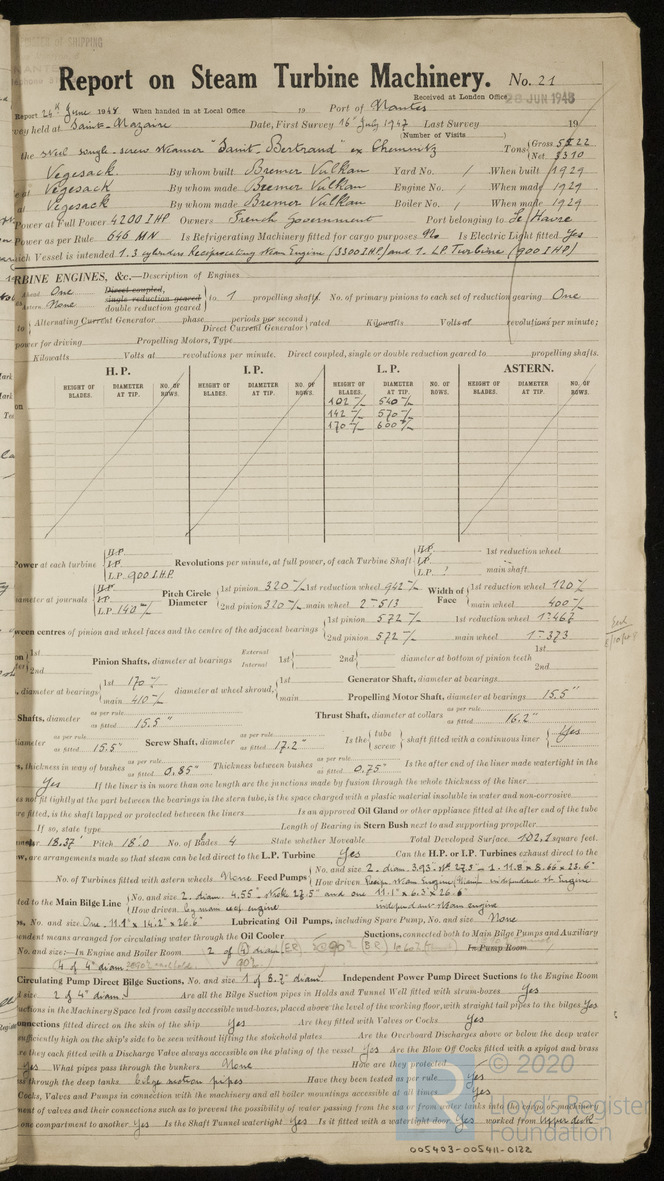 Report on Steam Turbine Machinery. No. 21
Received at London Office 28 JUN 1948
Report 24th June 1948 When handed in at Local Office 19 Port of Nantes
Survey held at Saint-Nazaire Date, First Survey 16th July 1947 Last Survey 19
(Number of Visits )
the steel single-screw steamer "Saint Bertrand" ex Chemnitz Tons Gross 5522
Net 3310
Vegesack. By whom built Bremer Vulkan Yard No. / When built 1929
Vegesack By whom made Bremer Vulkan Engine No. / When made 1929
Vegesack By whom made Bremer Vulkan Boiler No. / When made 1929
Power at Full Power 4200 IHP Owners French Government Port belonging to Le Havre
Power as per Rule 646 MN Is Refrigerating Machinery fitted for cargo purposes No Is Electric Light fitted Yes
Vessel is intended 1. 3 cylinders Reciprocating Steam Engine (3300 IHP) and 1. L.P. Turbine (900 IHP)
TURBINE ENGINES, &c.—Description of Engines
Ahead One Direct coupled, single reduction geared to 1 propelling shaft. No. of primary pinions to each set of reduction gearing One
Astern None double reduction geared
Alternating Current Generator phase periods per second rated Kilowatts Volts at revolutions per minute;
Direct Current Generator
power for driving Propelling Motors, Type
Kilowatts Volts at revolutions per minute. Direct coupled, single or double reduction geared to propelling shafts.
H. P. I. P. L. P. ASTERN.
HEIGHT OF BLADES. DIAMETER AT TIP. NO. OF ROWS. HEIGHT OF BLADES. DIAMETER AT TIP. NO. OF ROWS. HEIGHT OF BLADES. DIAMETER AT TIP. NO. OF ROWS. HEIGHT OF BLADES. DIAMETER AT TIP. NO. OF ROWS.
102 m/m 540 m/m
142 m/m 570 m/m
170 m/m 600 m/m
Power at each turbine H.P. I.P. L.P. 900 I.H.P. Revolutions per minute, at full power, of each Turbine Shaft H.P. I.P. L.P. 1st reduction wheel main shaft
diameter at journals H.P. I.P. L.P. 140 m/m Pitch Circle Diameter 1st pinion 320 m/m 1st reduction wheel 942 m/m Width of Face 1st reduction wheel 120 m/m
2nd pinion 320 m/m main wheel 2m513 main wheel 400 m/m
between centres of pinion and wheel faces and the centre of the adjacent bearings 1st pinion 572 m/m 1st reduction wheel 1m467
2nd pinion 572 m/m main wheel 1m373
1st 2nd Pinion Shafts, diameter at bearings External Internal 1st 2nd diameter at bottom of pinion teeth 1st 2nd
diameter at bearings 1st 170 m/m main 410 m/m diameter at wheel shroud, 1st main Generator Shaft, diameter at bearings
Propelling Motor Shaft, diameter at bearings 15.5"
Shafts, diameter as per rule as fitted 15.5" Thrust Shaft, diameter at collars as per rule as fitted 16.2"
as per rule as fitted 15.5" Screw Shaft, diameter as per rule as fitted 17.2" Is the tube screw shaft fitted with a continuous liner Yes
thickness in way of bushes as per rule as fitted 0.85" Thickness between bushes as per rule as fitted 0.75" Is the after end of the liner made watertight in the
Yes If the liner is in more than one length are the junctions made by fusion through the whole thickness of the liner
not fit tightly at the part between the bearings in the stern tube, is the space charged with a plastic material insoluble in water and non-corrosive
fitted, is the shaft lapped or protected between the liners Is an approved Oil Gland or other appliance fitted at the after end of the tube
If so, state type Length of Bearing in Stern Bush next to and supporting propeller
18.37' Pitch 18'0 No. of Blades 4 State whether Moveable Total Developed Surface 102.1 square feet.
are arrangements made so that steam can be led direct to the L.P. Turbine Yes Can the H.P. or I.P. Turbines exhaust direct to the
No. of Turbines fitted with astern wheels None Feed Pumps No. and size
How driven
to the Main Bilge Line No. and size 2. diam. 4.55" Stroke 27.5" and one 11.1" x 6.3" x 26.6"
How driven by main recip engine independent steam engine
No. and size One 11.1" x 14.2" x 26.6" Lubricating Oil Pumps, including Spare Pump, No. and size None
independent means arranged for circulating water through the Oil Cooler Suctions, connected both to Main Bilge Pumps and Auxiliary
No. and size:—In Engine and Boiler Room 2 of 4 diam (ER) In Pump Room
4 of 4" diam
Circulating Pump Direct Bilge Suctions, No. and size 1 of 8.7" diam Independent Power Pump Direct Suctions to the Engine Room
size 2 of 4" diam Are all the Bilge Suction pipes in Holds and Tunnel Well fitted with strum-boxes Yes
Suctions in the Machinery Space led from easily accessible mud-boxes, placed above the level of the working floor, with straight tail pipes to the bilges Yes
Connections fitted direct on the skin of the ship Yes Are they fitted with Valves or Cocks Yes
sufficiently high on the ship's side to be seen without lifting the stokehold plates Are the Overboard Discharges above or below the deep water
are they each fitted with a Discharge Valve always accessible on the plating of the vessel Yes Are the Blow Off Cocks fitted with a spigot and brass
Yes What pipes pass through the bunkers None How are they protected
through the deep tanks bilge suction pipes Have they been tested as per rule Yes
Cocks, Valves and Pumps in connection with the machinery and all boiler mountings accessible at all times Yes
arrangement of valves and their connections such as to prevent the possibility of water passing from the sea or from water tanks into the cargo or machinery
one compartment to another Yes Is the Shaft Tunnel watertight Yes Is it fitted with a watertight door Yes worked from Upper deck
© 2020
Lloyd's Register
Foundation
005403-005411-0122